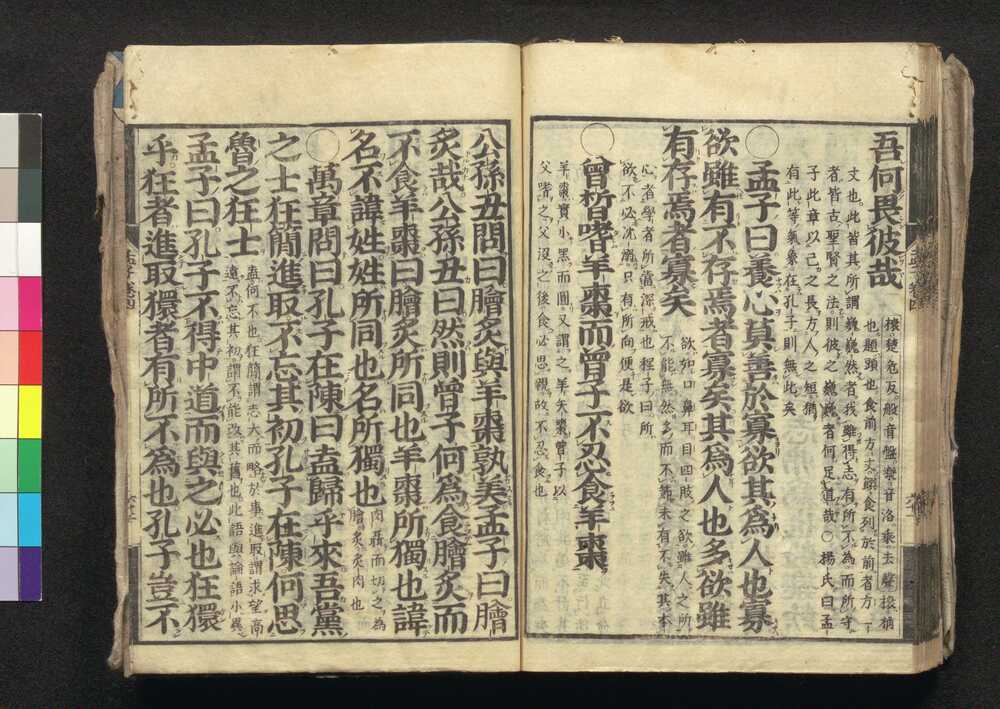 吾何畏彼哉
榱楚危反般音盤樂音洛乘去聲榱桷
也題頭也食前方丈饌食列於前者方一
丈也此皆其所謂巍巍然者我雖得志有所不為而所守
者皆古聖賢之法則彼之巍巍者何足道哉○楊氏曰孟
子此章以己之長方人之短猶
有此等氣象在孔子則無此矣
○孟子曰養心莫善於寡欲其為人也寡
欲雖有不存焉者寡矣其為人也多欲雖
有存焉者寡矣
欲如口鼻耳目四肢之欲雖人之所
不能無然多而不節未有不失其本
心者學者所當深戒也程子曰所
欲不必沈溺只有所向便是欲
○曾皙嗜羊棗而曾子不忍食羊棗
羊棗實小黑而圓又謂之羊矢棗曾子以
父嗜之父沒之後食必思親故不忍食也
公孫丑問曰膾炙與羊棗孰美孟子曰膾
炙哉公孫丑曰然則曾子何為食膾炙而
不食羊棗曰膾炙所同也羊棗所獨也諱
名不諱姓姓所同也名所獨也
肉聶而切之為
膾炙炙肉也
○萬章問曰孔子在陳曰盍歸乎來吾黨
之士狂簡進取不忘其初孔子在陳何思
魯之狂士
盍何不也狂簡謂志大而略於事進取謂求望高
遠不忘其初謂不能改其舊也此語與論語小異
孟子曰孔子不得中道而與之必也狂獧
乎狂者進取獧者有所不為也孔子豈不